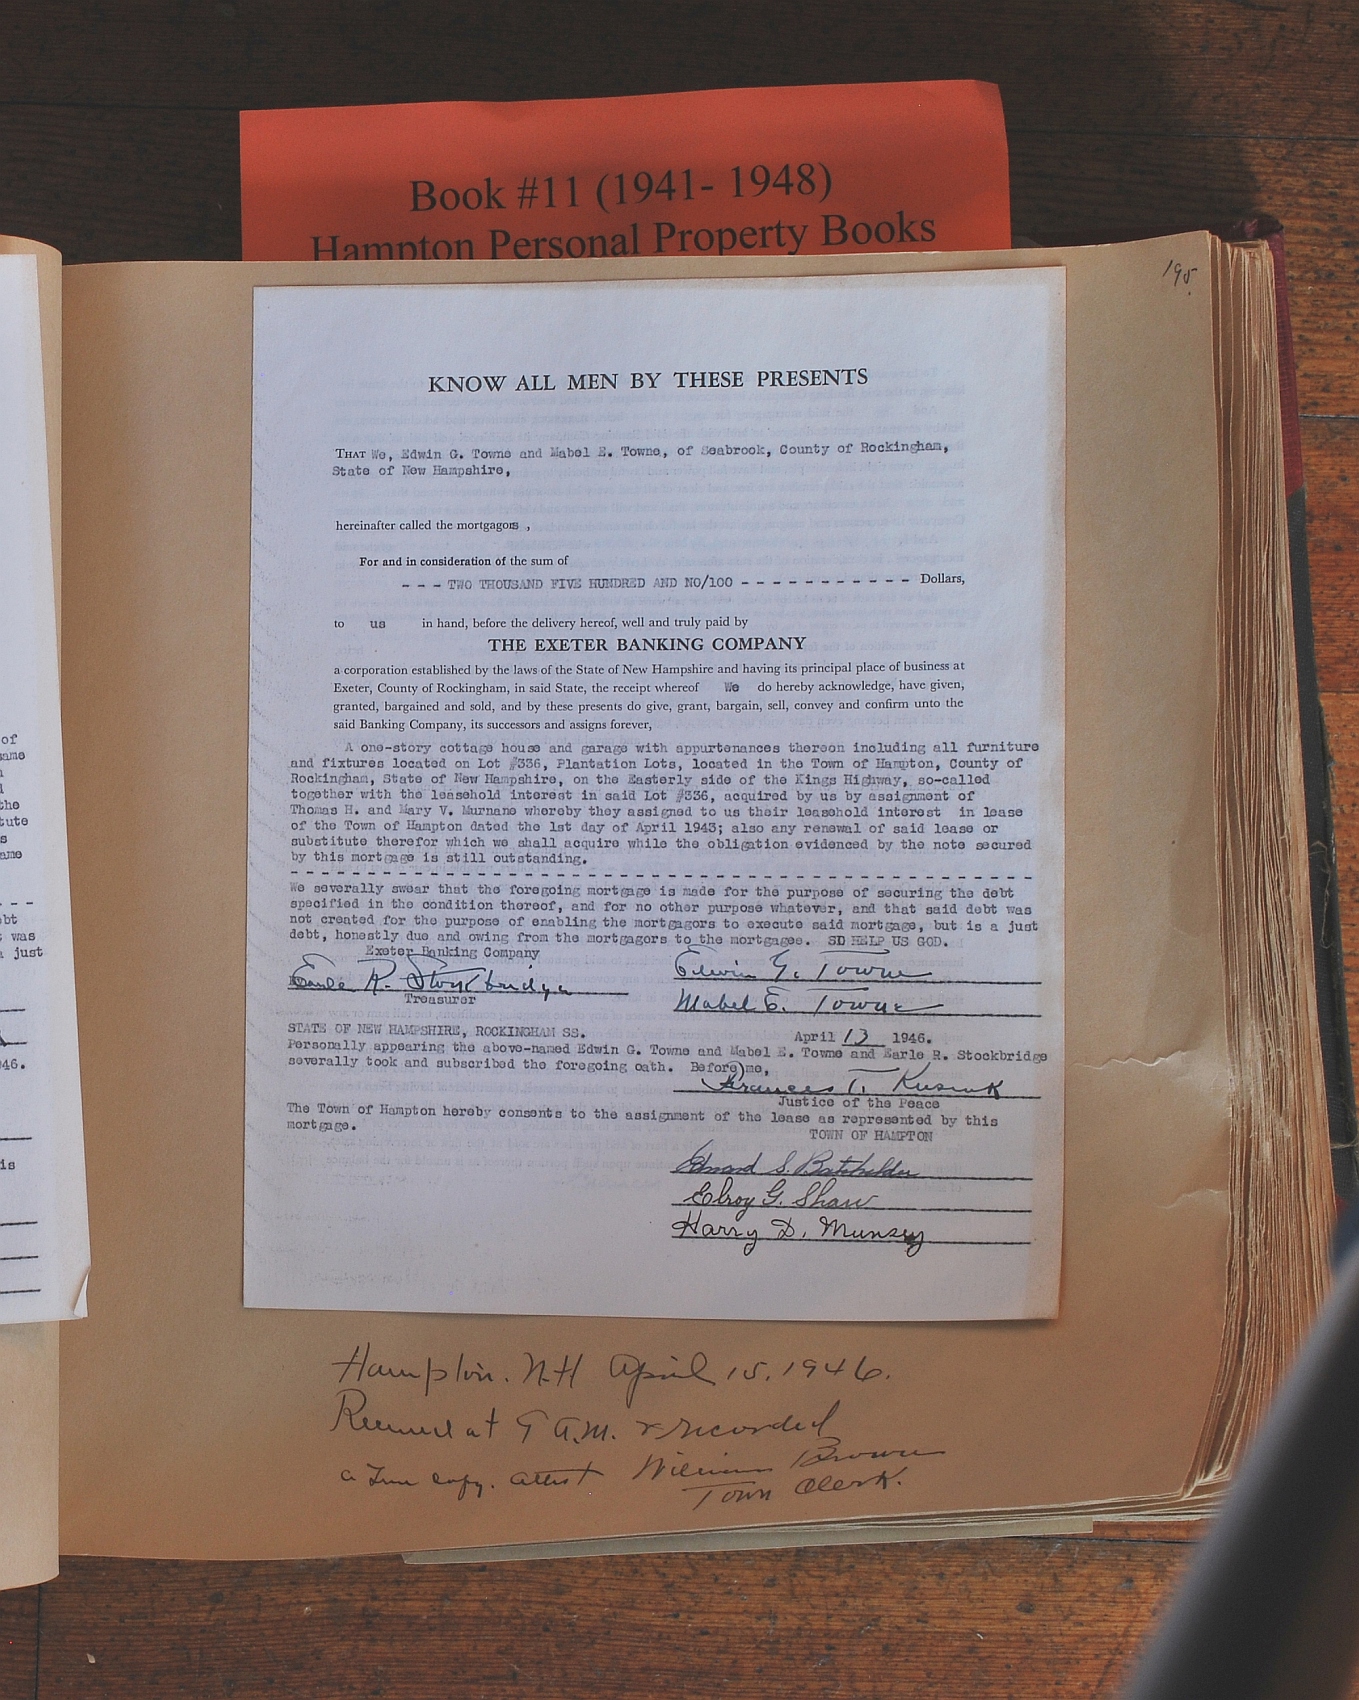 Book #11 (1941- 1948)
Hampton Personal Property Books
195.
KNOW ALL MEN BY THESE PRESENTS
THAT We, Edwin G. Towne and Mabel E. Towne, of Seabrook, County of Rockingham,
State of New Hampshire,
hereinafter called the mortgagors ,
For and in consideration of the sum of
- - - TWO THOUSAND FIVE HUNDRED AND NO/100 - - - - - - - - - - - - Dollars,
to us in hand, before the delivery hereof, well and truly paid by
THE EXETER BANKING COMPANY
a corporation established by the laws of the State of New Hampshire and having its principal place of business at
Exeter, County of Rockingham, in said State, the receipt whereof We do hereby acknowledge, have given,
granted, bargained and sold, and by these presents do give, grant, bargain, sell, convey and confirm unto the
said Banking Company, its successors and assigns forever,
A one-story cottage house and garage with appurtenances thereon including all furniture
and fixtures located on Lot #336, Plantation Lots, located in the Town of Hampton, County of
Rockingham, State of New Hampshire, on the Easterly side of the Kings Highway, so-called
together with the leasehold interest in said Lot #336, acquired by us by assignment of
Thomas H. and Mary V. Murnane whereby they assigned to us their leasehold interest in lease
of the Town of Hampton dated the 1st day of April 1943; also any renewal of said lease or
substitute therefor which we shall acquire while the obligation evidenced by the note secured
by this mortgage is still outstanding.
We severally swear that the foregoing mortgage is made for the purpose of securing the debt
specified in the condition thereof, and for no other purpose whatever, and that said debt was
not created for the purpose of enabling the mortgagors to execute said mortgage, but is a just
debt, honestly due and owing from the mortgagors to the mortgagee. SO HELP US GOD.
Exeter Banking Company
Earle R. Stockbridge
Treasurer
Edwin G. Towne
Mabel E. Towne
STATE OF NEW HAMPSHIRE, ROCKINGHAM SS. April 13 1946.
Personally appearing the above-named Edwin G. Towne and Mabel E. Towne and Earle R. Stockbridge
severally took and subscribed the foregoing oath. Before me,
Frances T. Kusnuk
Justice of the Peace
The Town of Hampton hereby consents to the assignment of the lease as represented by this
mortgage.
TOWN OF HAMPTON
Edward S. Batchelder
Elroy G. Shaw
Harry D. Munsey
Hampton. N.H April 15, 1946.
Received at 9 A.M. & recorded
a True copy. attest William Brown
Town Clerk.
of
same
the
tute
s
ame
ebt
was
a just
946.
is